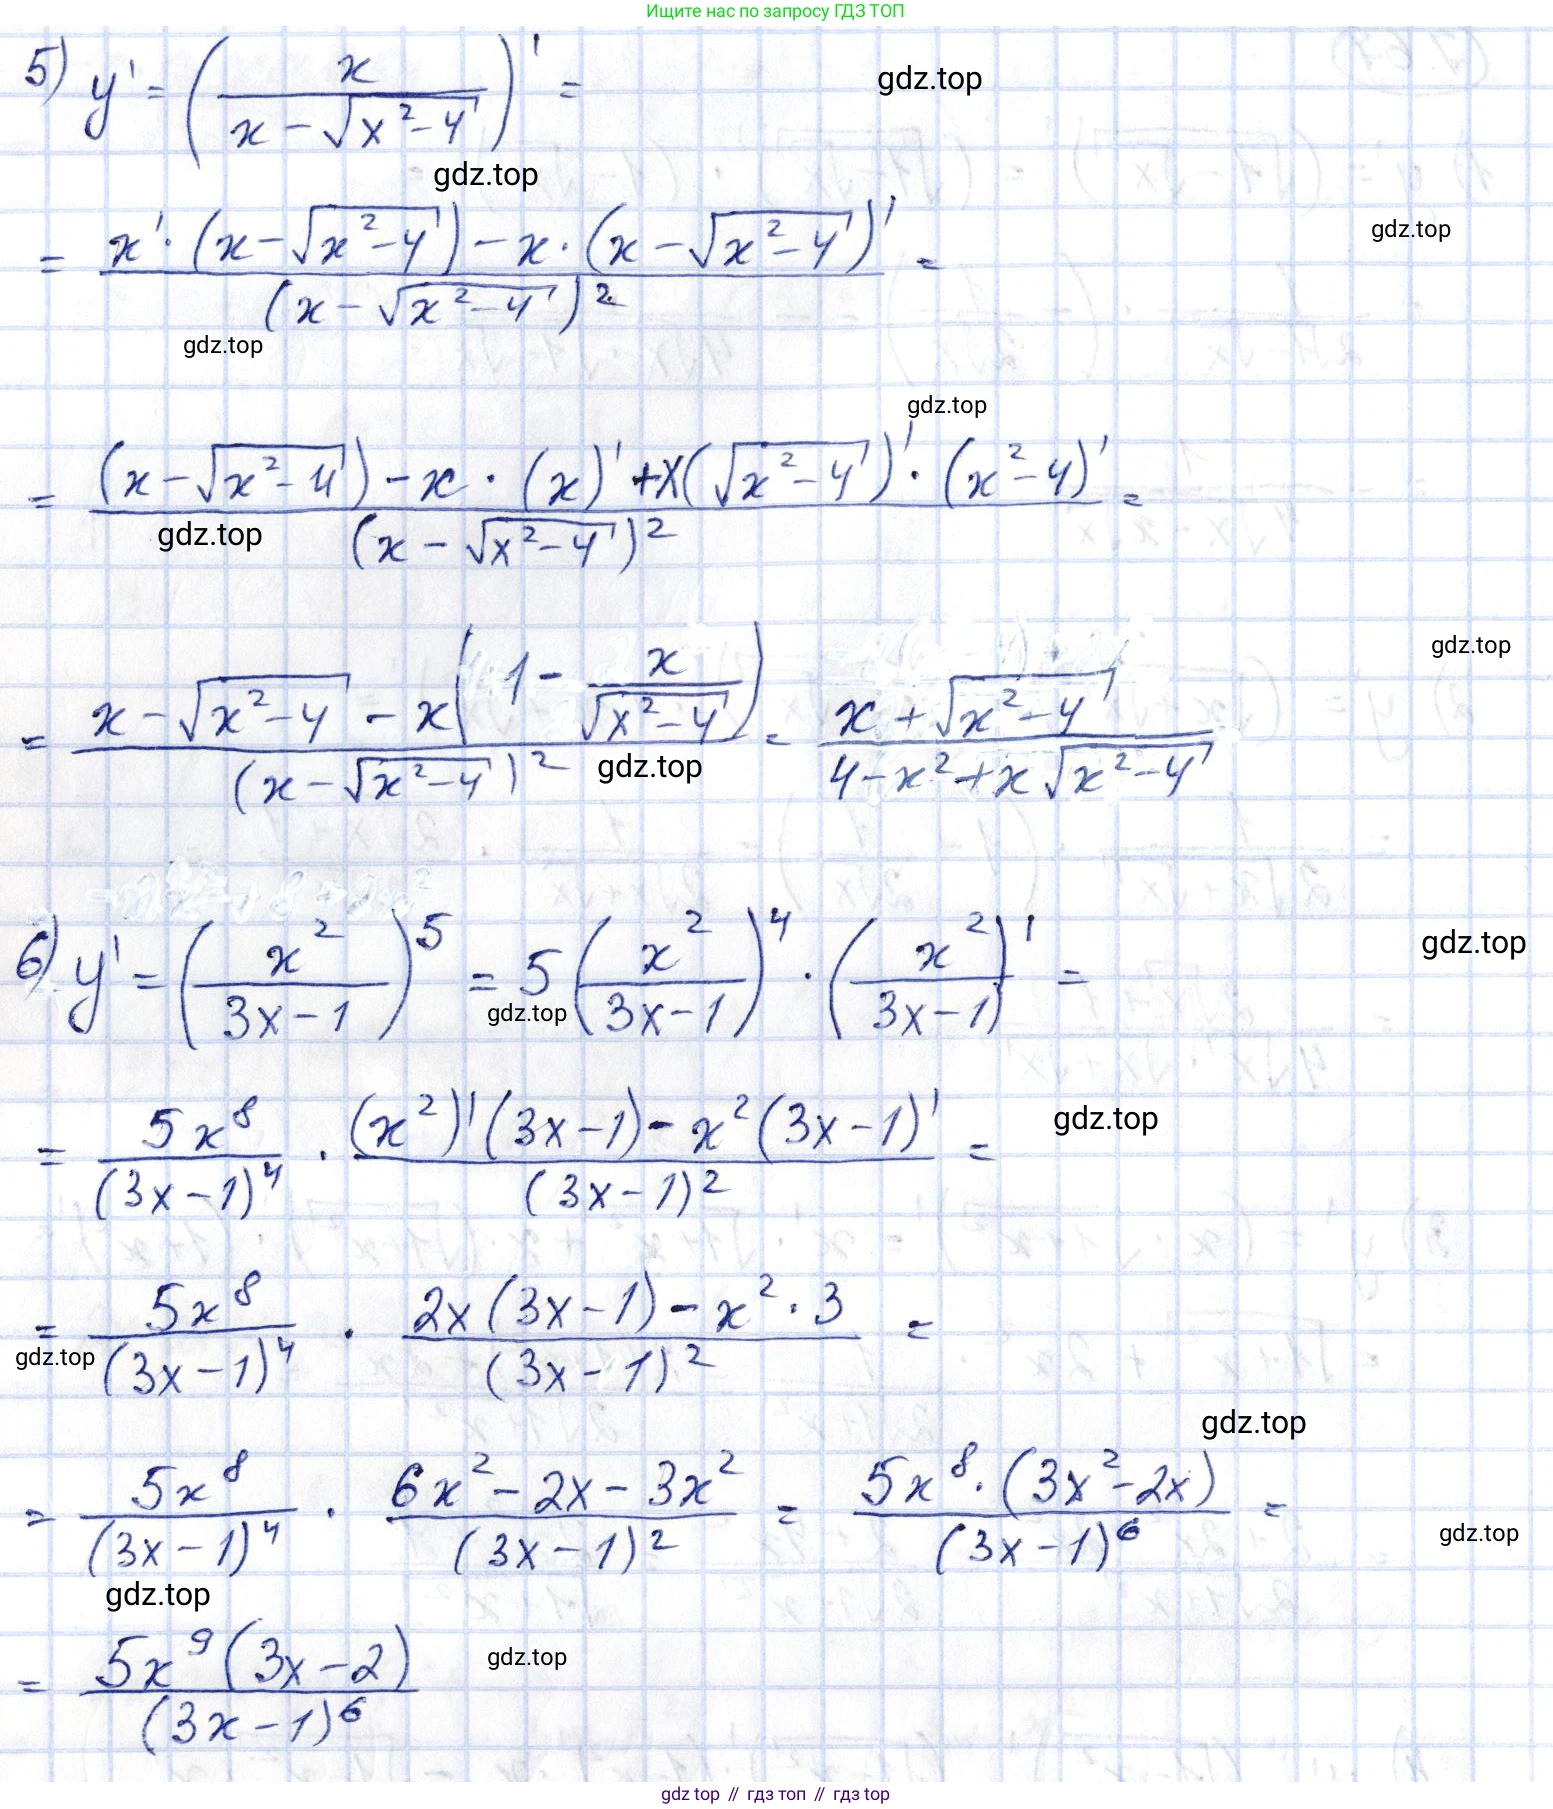 Ищите нас по запросу ГДЗ ТОП
5) y' = (x / (x - √(x² - 4)))' =
gdz.top
gdz.top
= (x' · (x - √(x² - 4)) - x · (x - √(x² - 4))') / (x - √(x² - 4))² =
gdz.top
gdz.top
gdz.top
= ((x - √(x² - 4)) - x · (x)' + x(√(x² - 4))' · (x² - 4)') / (x - √(x² - 4))² =
gdz.top
= (x - √(x² - 4) - x(1 - x / √(x² - 4))) / (x - √(x² - 4))² = (x + √(x² - 4)) / (4 - x² + x√(x² - 4))
gdz.top
gdz.top
6) y' = (x² / (3x - 1))⁵ = 5(x² / (3x - 1))⁴ · (x² / (3x - 1))' =
gdz.top
gdz.top
= 5x⁸ / (3x - 1)⁴ · ((x²)'(3x - 1) - x²(3x - 1)') / (3x - 1)² =
gdz.top
= 5x⁸ / (3x - 1)⁴ · (2x(3x - 1) - x² · 3) / (3x - 1)² =
gdz.top
gdz.top
= 5x⁸ / (3x - 1)⁴ · (6x² - 2x - 3x²) / (3x - 1)² = 5x⁸ · (3x² - 2x) / (3x - 1)⁶ =
gdz.top
gdz.top
= 5x⁹(3x - 2) / (3x - 1)⁶
gdz.top
gdz top // гдз топ // гдз top